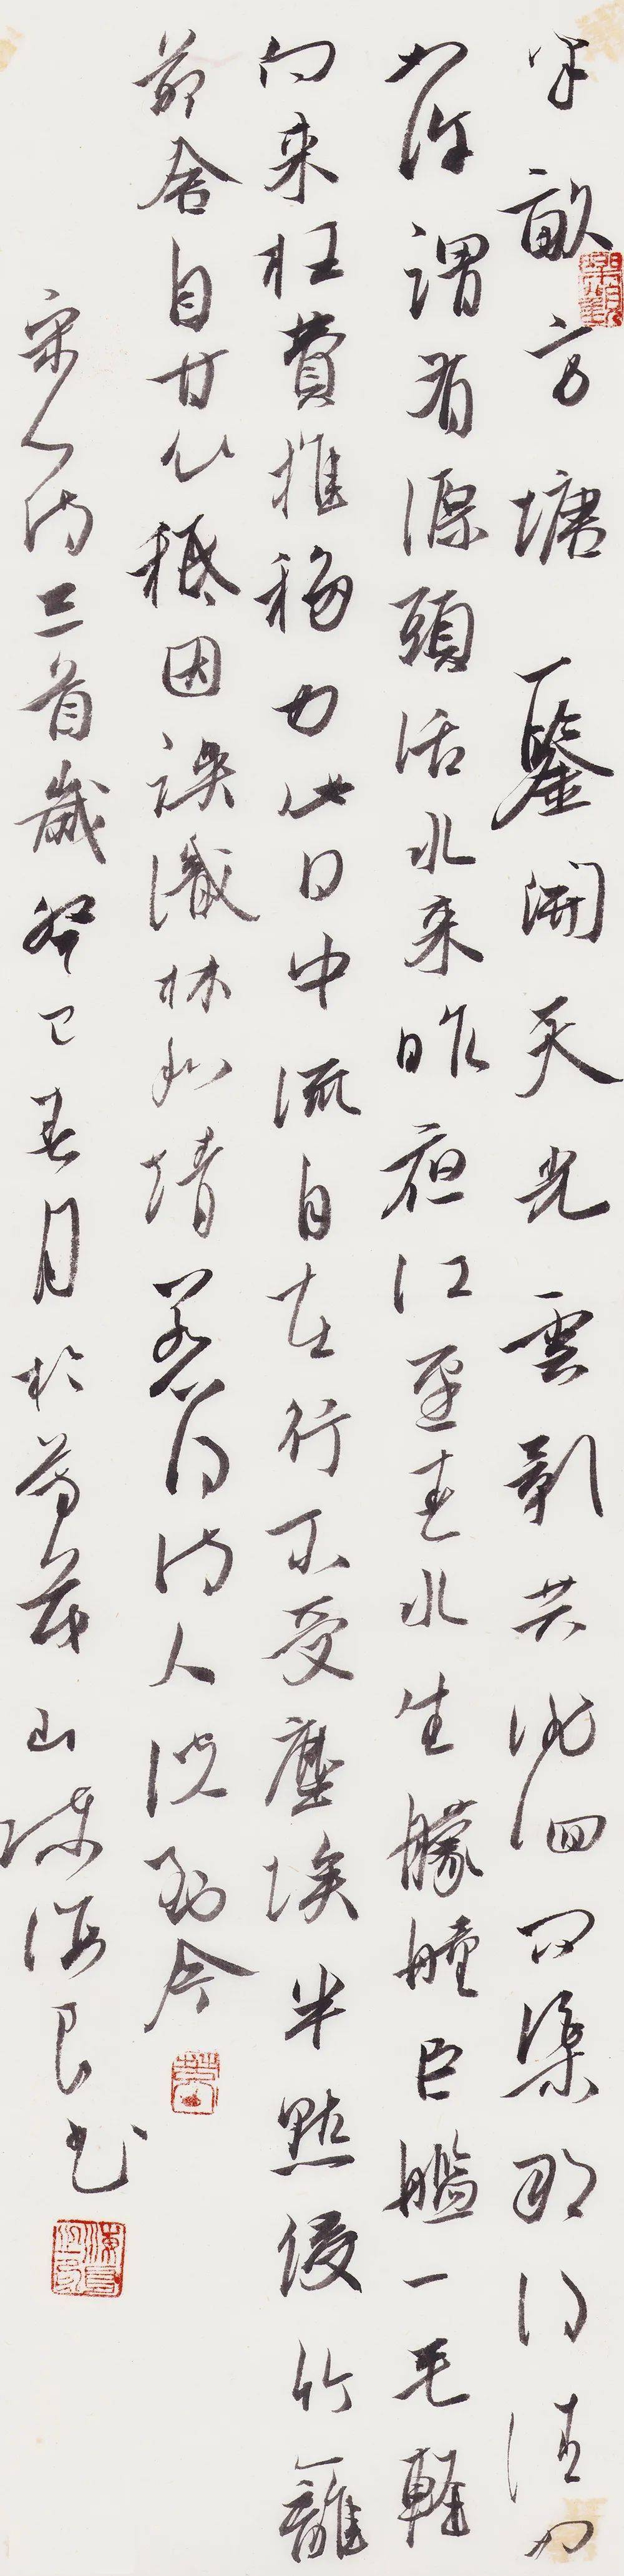 半畝方塘一鑒開天光雲影共徘徊問渠那得清
如許謂有源頭活水来昨夜江邊春水生艨艟巨艦一毛輕
向来枉費推移力此日中流自在行不受塵埃半點侵竹籬
茆舍自甘心秪因誤識林和靖惹得詩人說到今
宋人詩三首歲癸巳春月於山陳海良書